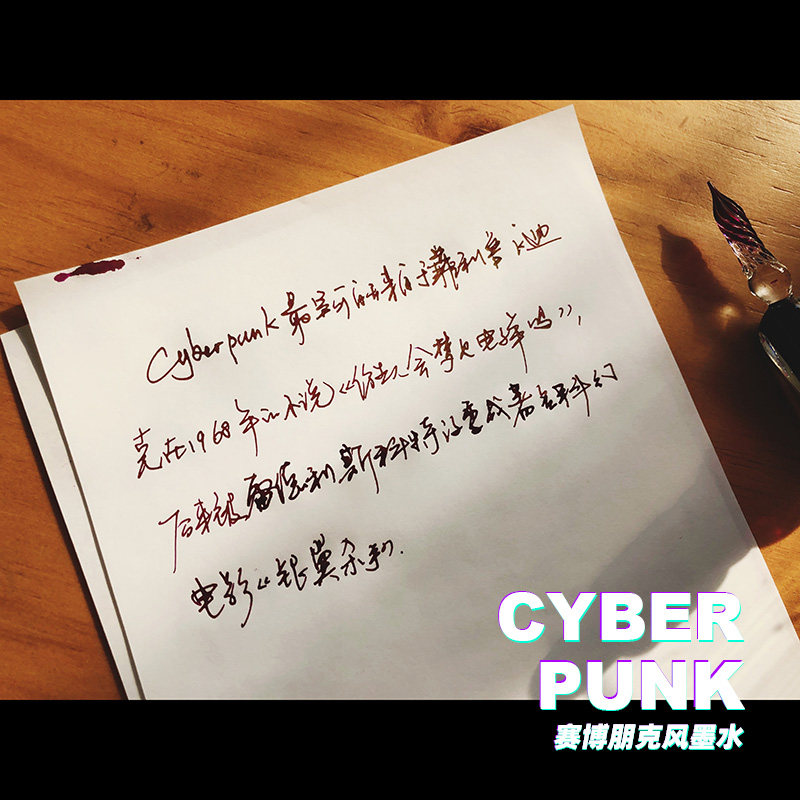 Cyberpunk最早可 来自于菲利普 k迪
克在1968年的小说《仿生人会梦见电羊吗》,
后来被雷德利斯科特 成著名科幻
电影《银翼杀手.
CYBER
PUNK
赛博朋克风墨水